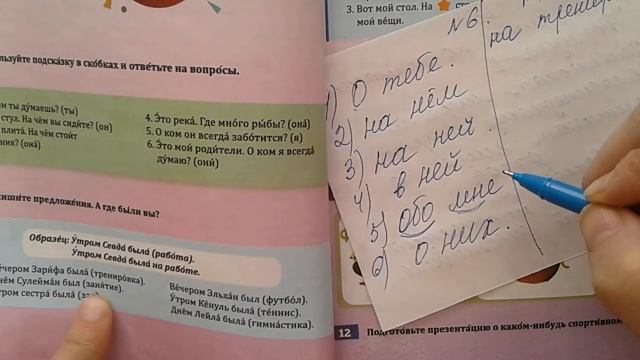 3. Вот мой стол. На
мой ве́щи.
льзуйте подска́зку в ско́бках и отве́тьте на вопро́сы.
ом ты ду́маешь? (ты)
стул. На чём вы сиди́те? (он)
плита́. На чём стои́т
ник? (она́)
4. Э́то река́. Где мно́го ры́бы? (она́)
5. О ком он всегда́ забо́тится? (я)
6. Э́то мои́ роди́тели. О ком я всегда́
ду́маю? (они́)
пиши́те предложе́ния. А где бы́ли вы?
Образе́ц: У́тром Севда́ была́ (рабо́та).
У́тром Севда́ была́ на рабо́те.
е́чером Зари́фа была́ (трениро́вка).
нём Сулейма́н был (заня́тие).
тром сестра́ была́
Ве́чером Эльха́н был (футбо́л).
У́тром Кёнуль была́ (те́ннис).
Днём Лейла́ была́ (гимна́стика).
№6.
на тренир
1) О тебе.
2) на нём
3) на ней.
4) в ней
5) обо мне
6) о них.
12 Подгото́вьте презента́цию о како́м-нибудь спорти́вном